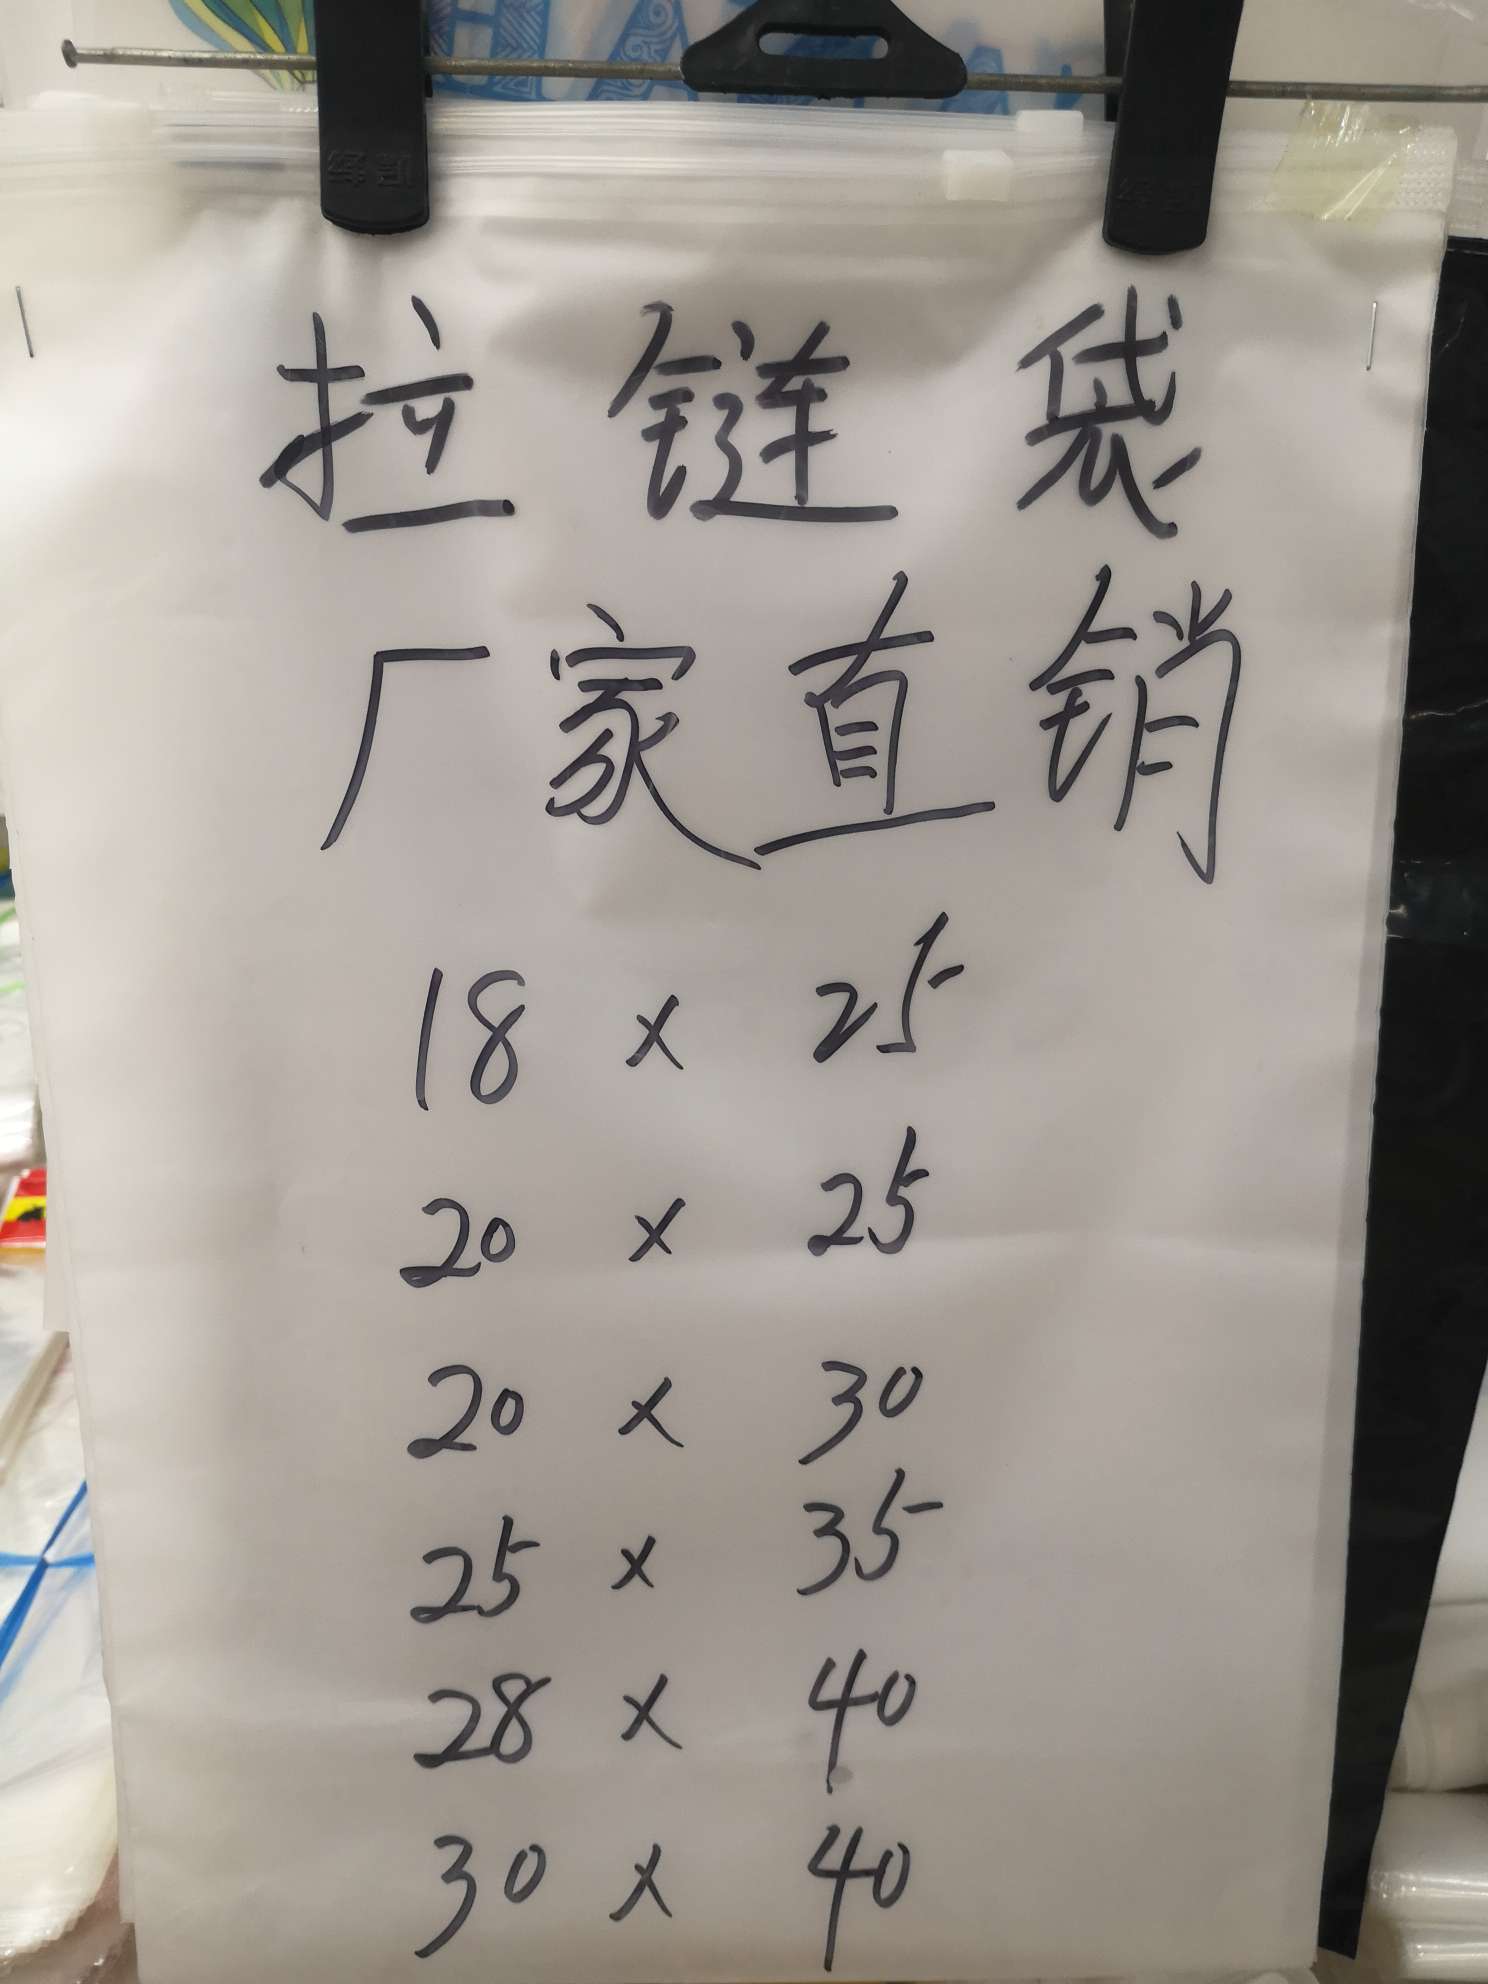 拉链袋
厂家直销
18 x 25
20 x 25
20 x 30
25 x 35
28 x 40
30 x 40